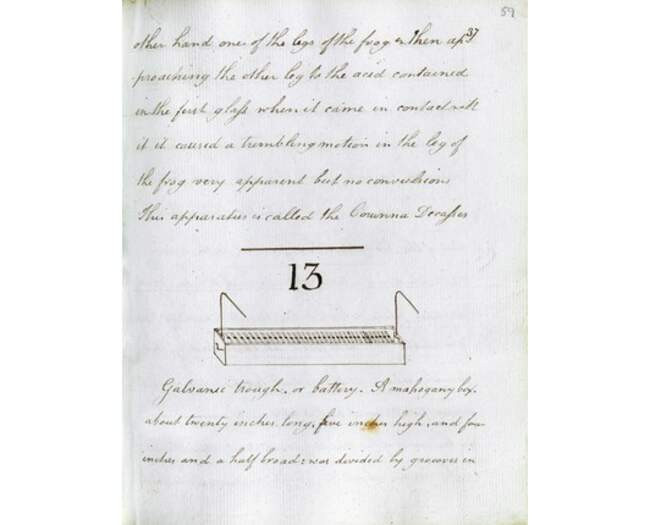 59
37
other hand one of the legs of the frog & then ap
proaching the other leg to the acid contained
in the first glass when it came in contact with
it it caused a trembling motion in the leg of
the frog very apparent but no convulsions
This apparatus is called the Courunna Decasses
13
Galvanic trough, or battery. A mahogany box,
about twenty inches long, five inches high, and four
inches and a half broad: was divided by grooves in